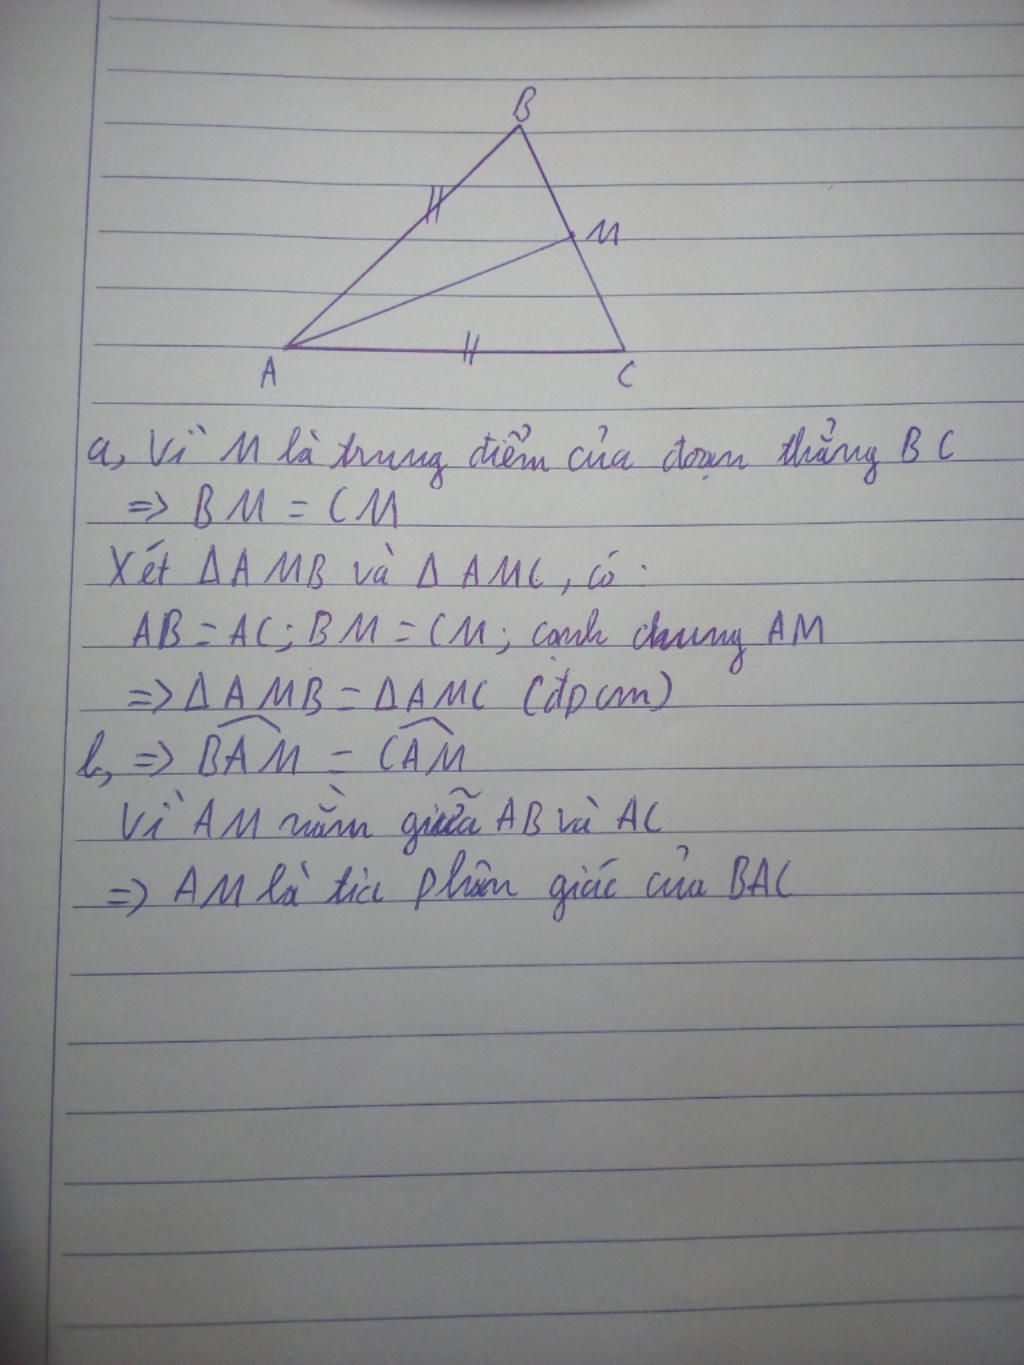 B
M
A
C
a, Vì M là trung điểm của đoạn thẳng BC
=> BM = CM
Xét ΔAMB và ΔAMC, có:
AB = AC; BM = CM; cạnh chung AM
=> ΔAMB = ΔAMC (đpcm)
b, => BAM = CAM
Vì AM nằm giữa AB và AC
=> AM là tia phân giác của BAC